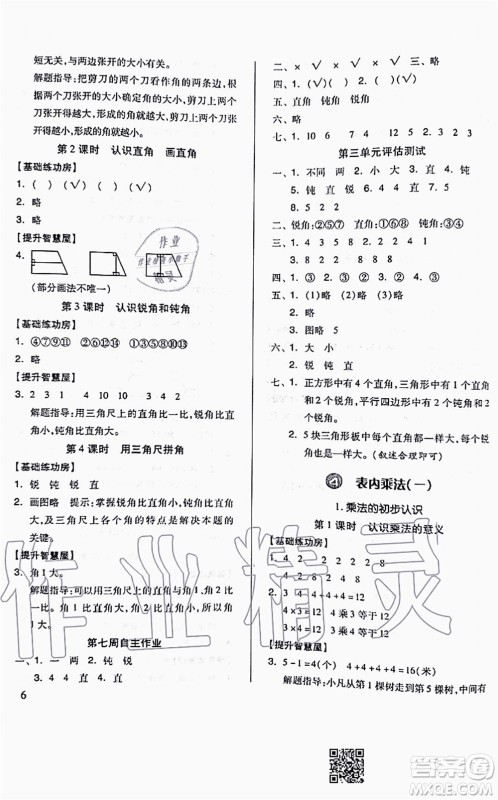 短无关，与两边张开的大小有关。
解题指导：把剪刀的两个刀张看作角的两条边，两个刀张开得越大，形成的角就越大，剪刀上两个刀张开得越小，形成的角就越小。
第2课时　认识直角　画直角
【基础练功房】
1.（　）（　）（√）（　）（√）（　）
2. 略　3. 略
【提升智慧屋】
4.
（部分画法不唯一）
第3课时　认识锐角和钝角
【基础练功房】
1. ④⑦⑨⑪　②⑥⑧⑫　①③⑤⑩⑬　2. 略
【提升智慧屋】
3. 2　3　1　4　10　2
解题指导：用三角尺上的直角比一比，锐角比直角小，钝角比直角大。
第4课时　用三角尺拼角
【基础练功房】
1. 钝　锐　钝　锐　直
2. 画图略　提示：掌握锐角比直角小，钝角比直角大和三角尺上各个角的特点是解决本题的关键。
【提升智慧屋】
3. 角1大。
解题指导：可以先和直角比一比，角1比直角大，角2比直角小。角1比直角大，直角比角2大，所以角1大。
第七周自主作业
一、1. 一　两　2. 钝　锐
3. 4　4　直　4. 直
6
二、×　×　√　√　×　三、略
四、（√）（　）（√）（　）
五、直角　钝角　锐角
六、略
七、1. 10　6　2. 4　4　3. 7　8　4. 12
第三单元评估测试
一、1. 不同　两　2. 小　大　3. 直　4. 钝
5. 钝　直　锐　6. 5　1　7. 4　直
8. 5　2　2
二、锐角：②⑤⑦　直角：①⑥⑧　钝角：③④
三、1. √　2. √　3. ×　4. √　5. ×
四、1. ③　2. ②　3. ③　4. ①　5. ①
五、1. 略　2. 略
3. 图略　5
六、1. 大　小
2. 锐　钝　直
七、1. 正方形中有4个直角，三角形中有1个直角和2个锐角，梯形中有2个钝角和2个锐角。
2. 5块三角形板中最大的角都是直角，其余的角都是锐角。（叙述合理即可）
四　表内乘法(一)
1.乘法的初步认识
第1课时　认识乘法的意义
【基础练功房】
1. 4　2　2　2　2　8　2　4　8
2. 3　4　4+4+4=12
4×3=12　4乘3等于12
3×4=12　3乘4等于12
【提升智慧屋】
3. 5-1=4(个)　4+4+4+4=16(米)
解题指导：小凡从第1棵树走到第5棵树，中间
作业精灵
答案圈
MXQE.COM